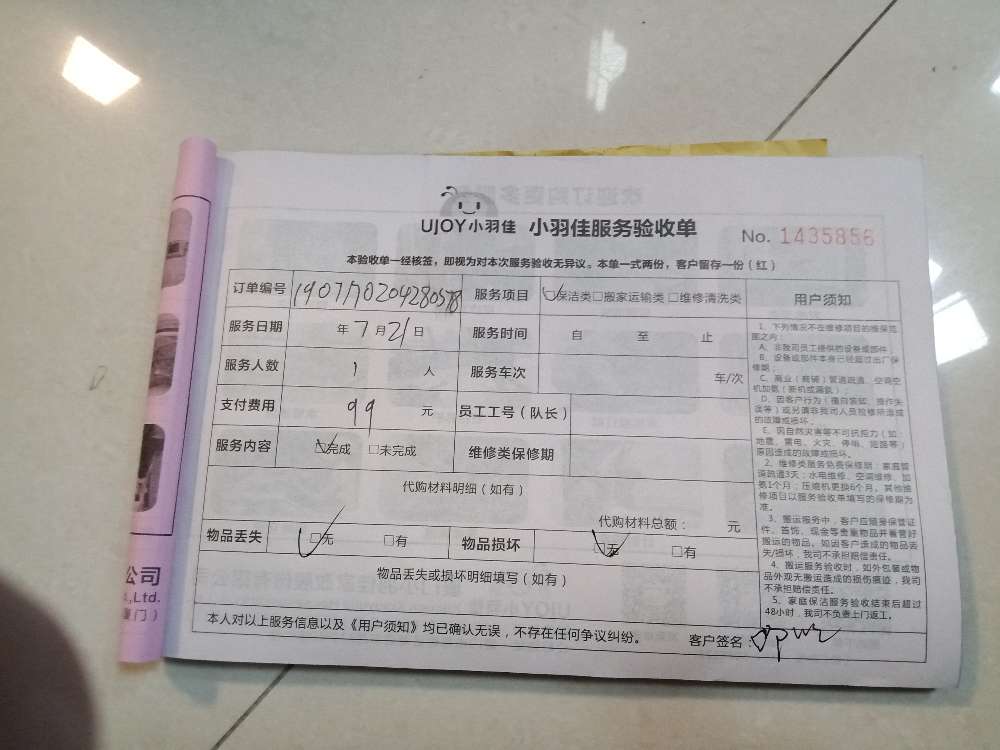 UJOY小羽佳 小羽佳服务验收单 No. 1435856
本验收单一经核签，即视为对本次服务验收无异议。本单一式两份，客户留存一份（红）
订单编号 服务项目 ☑保洁类□搬家运输类□维修清洗类 用户须知
服务日期 年7月21日 服务时间 自 至 止
服务人数 1 人 服务车次 车/次
支付费用 99 元 员工工号（队长）
服务内容 ☑完成 □未完成 维修类保修期
代购材料明细（如有）
代购材料总额： 元
物品丢失 ☑无 □有 物品损坏 ☑无 □有
物品丢失或损坏明细填写（如有）
本人对以上服务信息以及《用户须知》均已确认无误，不存在任何争议纠纷。 客户签名：
1、下列情况不在维修项目的维保范
围之内：
A、非我司员工提供的设备或部件
B、设备或部件本身已经超过出厂保
修期；
C、商业（商铺）管道疏通、空调空
机加氨（新机或漏氨）
D、因客户行为（擅自装卸、操作失
误等）或另请非我司人员检修所造成
的故障或损坏。
E、因自然灾害等不可抗拒力（如：
地震、雷电、火灾、停电、短路等）
原因造成的故障或损坏。
2、维修类服务免费保修期：家庭管
道疏通3天；水电维修、空调维修、加
氨1个月；压缩机更换6个月。其他维
修项目以服务验收单填写的保修期为
准。
3、搬运服务中，客户应随身保管证
件、首饰、现金等贵重物品并看管好
搬运的物品。如因客户造成的物品丢
失/损坏，我司不承担赔偿责任。
4、搬运服务验收时，如外包装或物
品外观无搬运造成的损伤痕迹，我司
不承担赔偿责任。
5、家庭保洁服务验收结束后超过
48小时，我司不负责上门返工。
公司
.,Ltd.
厦门）